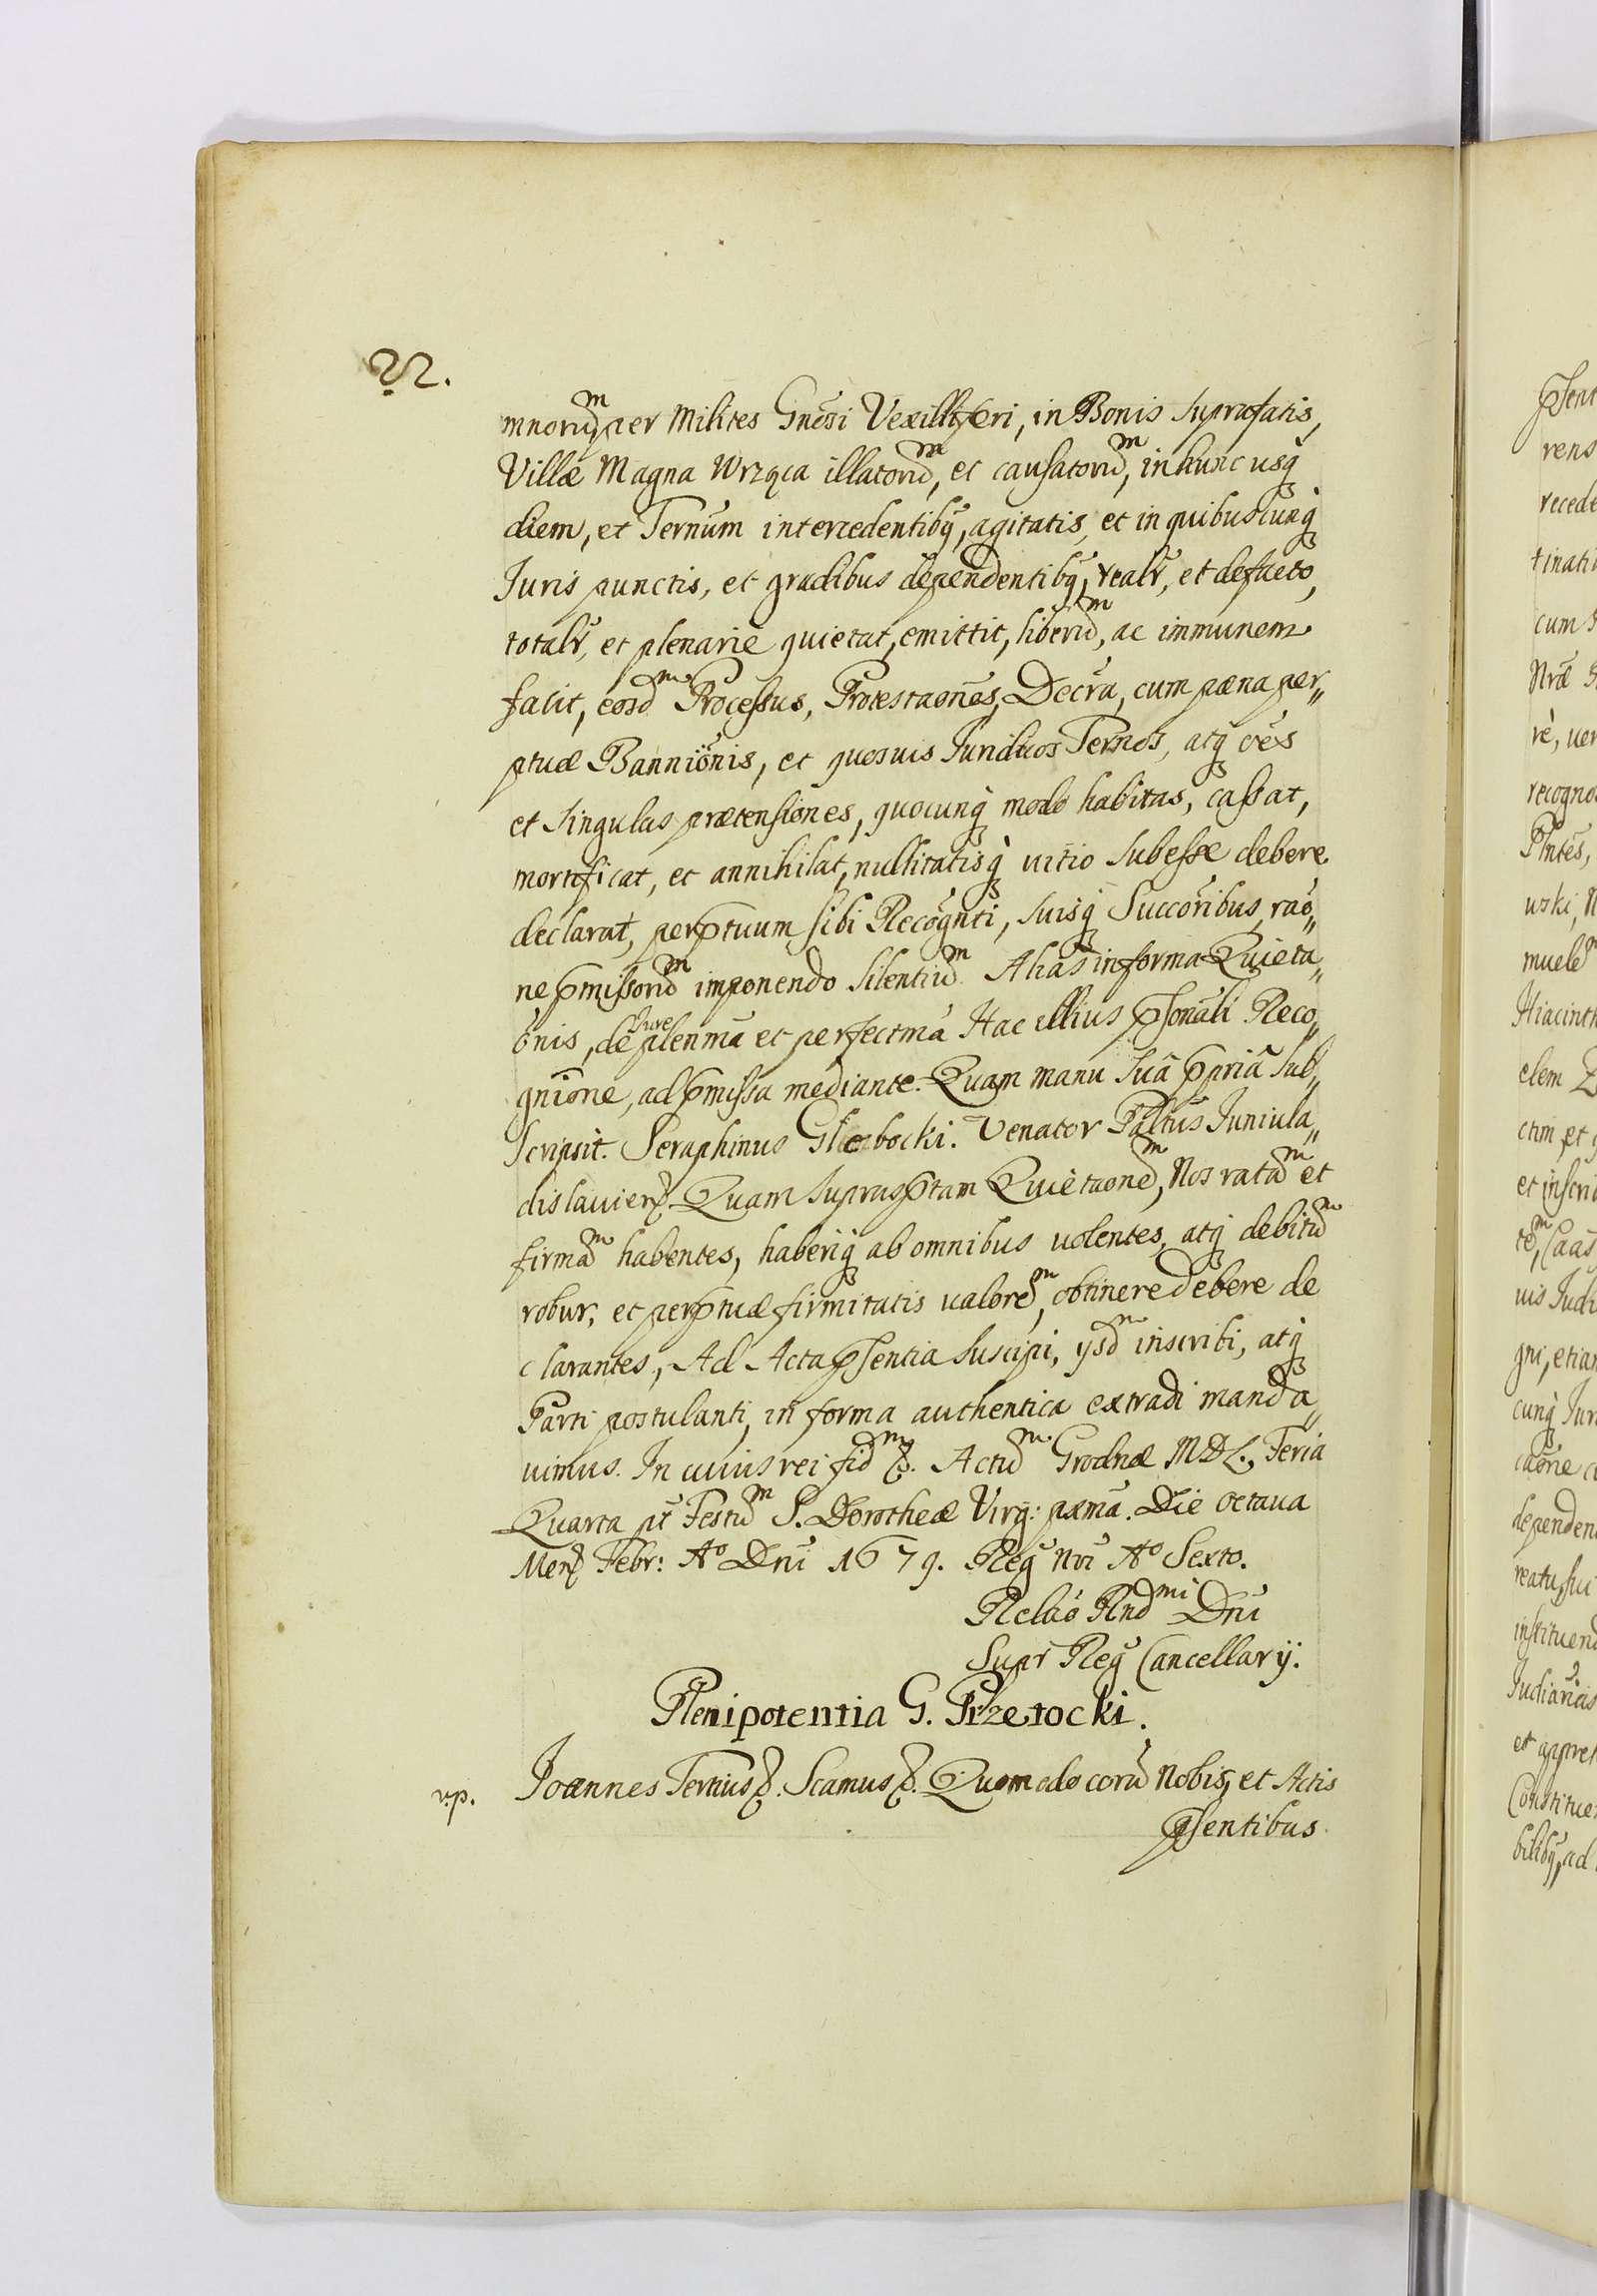 22.
mnorũm per Milites Gnosi Vexilliferi, in Bonis suprafatis,
Villæ Magna Wrzqca illatorũm, et causatorũm, in hunc usq
diem, et Ternum intercedentibq, agitatis, et in quibuscunq
Juris punctis, et gradibus dependentibq, realr, et de facto,
totalr, et plenarie quietat, emittit, liberũm, ac immunem
facit, eosdm Processus, Protestaões, Decra, cum pæna per„
ptuæ Banniõnis, et quosuis Juridicos Ternos, atq oẽs
et singulas prætensiones, quocunq modo habitas, cassat,
mortificat, et annihilat, nullitatisq uitio subesse debere
declarat, perptuum sibi Recognti, suisq Succoribus, rao„
ne pmissorũm imponendo silentiũm Alias in forma Quieta„
õnis, de Jure plenma et perfectma Hac illius psonali Reco„
gnione, ad pmissa mediante. Quam manu suâ ppriâ sub„
scripsit. Seraphinus Głębocki. Venator Paltus Juniula„
dislauien. Quam suprasptam Quietaonem, Nos ratam et
firmam habentes, haberiq ab omnibus uolentes, atq debitũm
robur, et perptuæ firmitatis ualorem, obtinere debere de
clarantes, Ad Acta psentia suscipi, ysdm inscribi, atq
Parti postulanti, in forma authentica extradi manda„
uimus. In cuius rei fidm &. Actũm Grodnæ MDL. Feria
Quarta pt Festũm S. Dorotheæ Virg: pxma. Die octaua
Men Febr: Aº Dni 1679. Reg nri Aº Sexto.
Relaõ Rndmi Dni
Supr Reg Cancellary.
Plenipotentia G. Przetocki.
v.p. Joannes Tertius &. Scamus &. Quomodo corũ Nobis, et Actis
psentibus
psent
rens
recede
tinati
cum
Nræ
rè, uer
recogno
Plntes,
wski, N
muele
Hiacinth
elem
ctm et
et inscri
tem, Caas
uis Judi
gni, etia
cunq Jur
caone
dependen
reatu, sui
instituen
Judiariis
et appre
Constitue
bilibq, ad